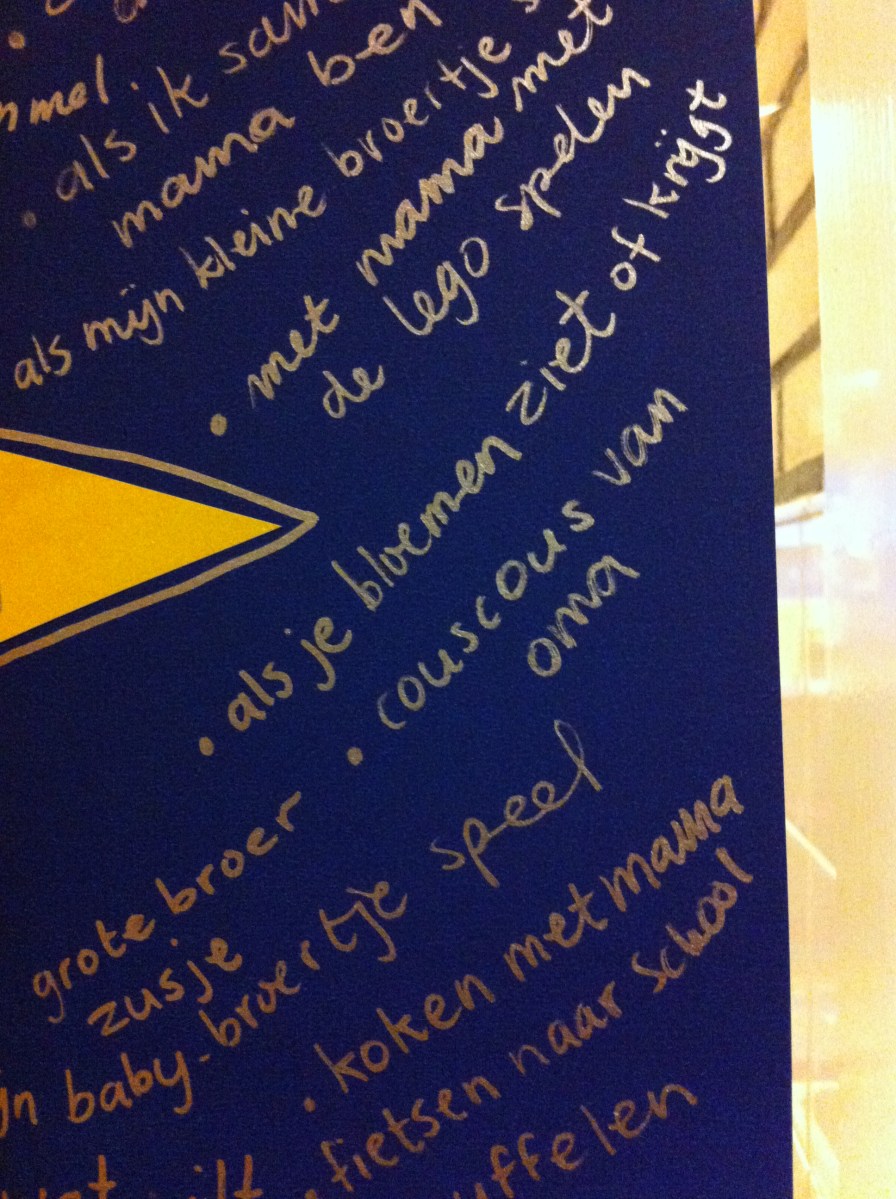 • als ik
mama ben
als mijn kleine broertje
• met mama met
de lego spelen
• als je bloemen ziet of krijgt
• couscous van
oma
grote broer
zusje
baby-broertje speel
• koken met mama
• fietsen naar school